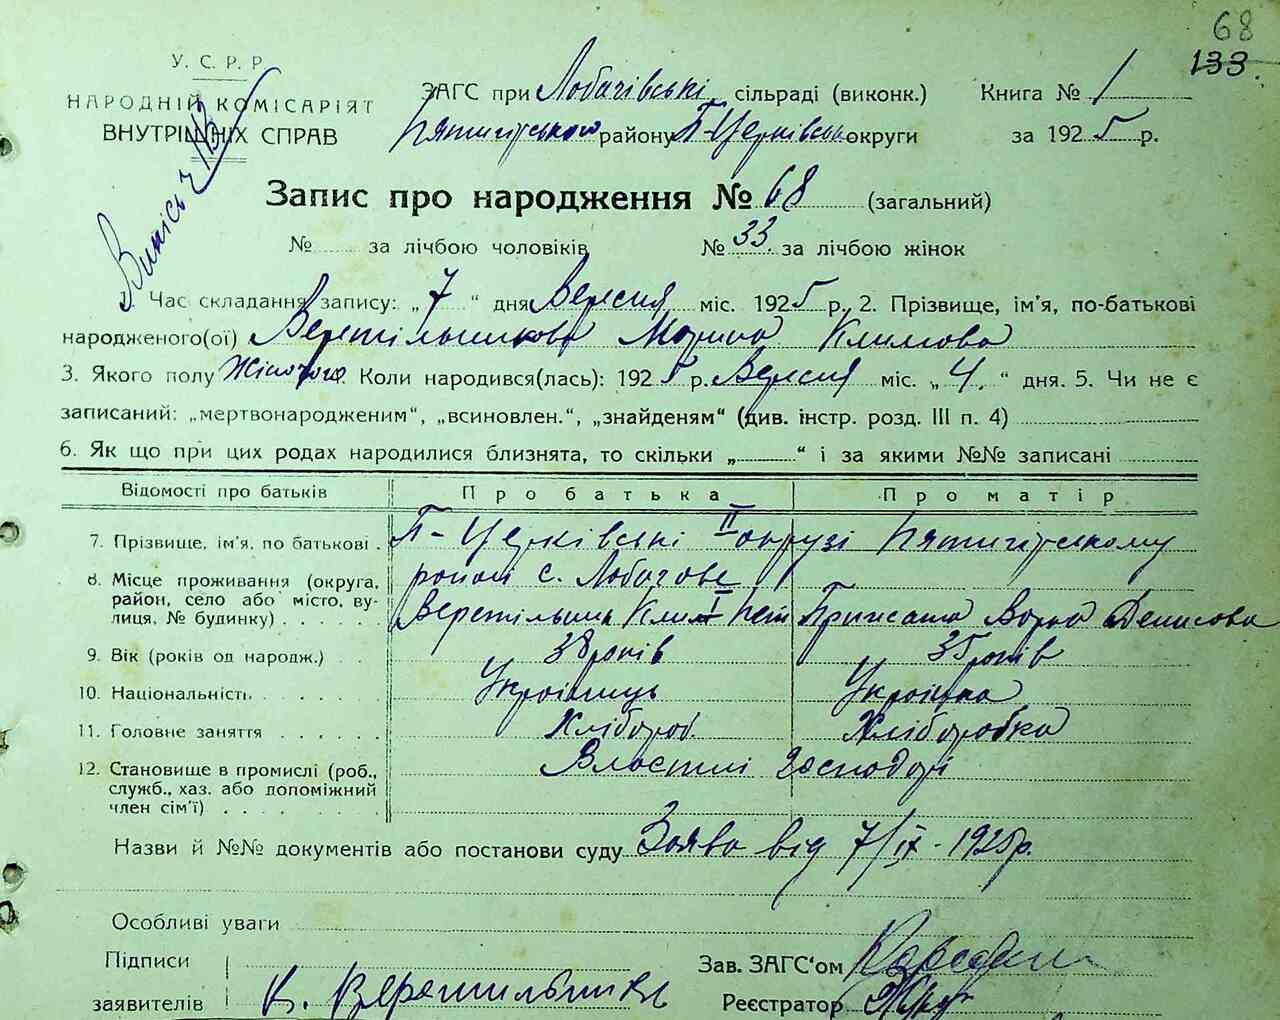 68
133.
У. С. Р. Р.
НАРОДНІЙ КОМІСАРІЯТ
ВНУТРІШНІХ СПРАВ
Випись
ЗАГС при Лобачівські сільраді (виконк.) Книга № 1
Пятигірського району Б-Церківськ округи за 1925 р.
Запис про народження № 68 (загальний)
№ за лічбою чоловіків № 33 за лічбою жінок
Час складання запису: „7“ дня Вересня міс. 1925 р. 2. Прізвище, ім'я, по-батькові
народженого(ої) Веретільникова Марина Климова
3. Якого полу Жіночого. Коли народився(лась): 1925 р. Вересня міс. „4.“ дня. 5. Чи не є
записаний: „мертвонародженим“, „всиновлен.“, „знайденям“ (див. інстр. розд. III п. 4)
6. Як що при цих родах народилися близнята, то скільки „ “ і за якими №№ записані
Відомості про батьків Про батька Про матір
7. Прізвище, ім'я, по батькові . Б-Церківські II округі Пятигірському
8. Місце проживання (округа, район, село або місто, вулиця, № будинку) . . . . . районі с. Лобачове
Веретільник Клим Прісяшна Варка Денисова
9. Вік (років од народж.) . . 38 років 35 років
10. Національність . . . . . Українець Українка
11. Головне заняття . . . . . . Хлібороб. Хліборобка
12. Становище в промислі (роб., служб., хаз. або допоміжний член сім'ї) . . . . . Власнлі Господарі
Назви й №№ документів або постанови суду Заява від 7/IX - 1925р.
Особливі уваги
Підписи Зав. ЗАГС'ом
заявителів К. Веретильник Реєстратор